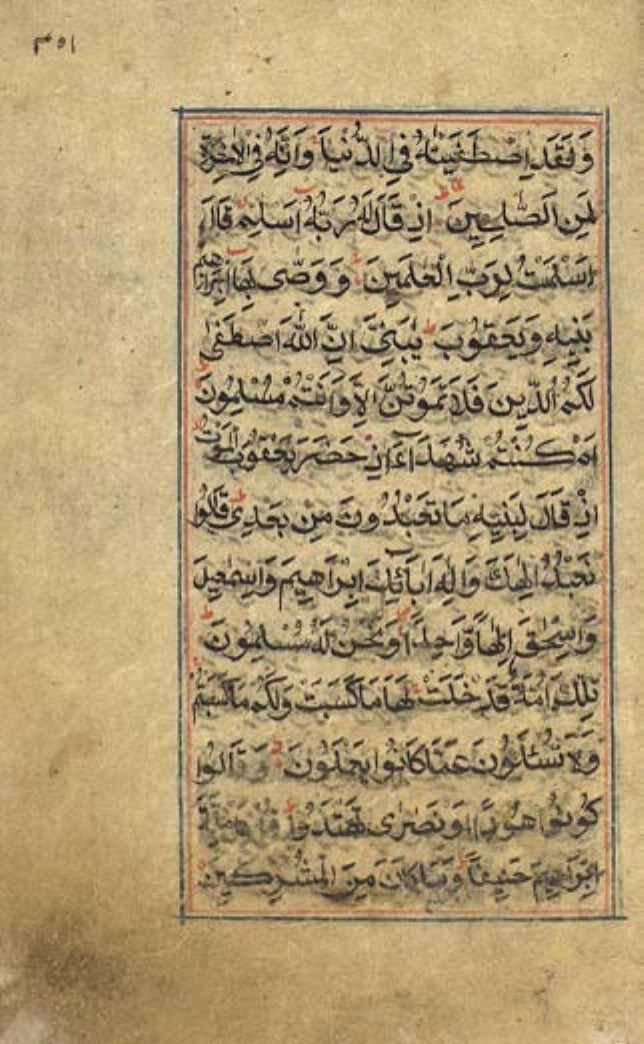 ٣٥١
وَلَقَدِ اصْطَفَيْنٰهُ فِي الدُّنْيَا وَاِنَّهُ فِي الْاٰخِرَةِ
لَمِنَ الصّٰلِحِيْنَ اِذْ قَالَ لَهُ رَبُّهُ اَسْلِمْ قَالَ
اَسْلَمْتُ لِرَبِّ الْعٰلَمِيْنَ وَ وَصّٰى بِهَا اِبْرَاهِيْمُ
بَنِيْهِ وَيَعْقُوْبُ يٰبَنِيَّ اِنَّ اللّٰهَ اصْطَفٰى
لَكُمُ الدِّيْنَ فَلَا تَمُوْتُنَّ اِلَّا وَاَنْتُمْ مُسْلِمُوْنَ
اَمْ كُنْتُمْ شُهَدَآءَ اِذْ حَضَرَ يَعْقُوْبَ الْمَوْتُ
اِذْ قَالَ لِبَنِيْهِ مَا تَعْبُدُوْنَ مِنْ بَعْدِيْ قَالُوْا
نَعْبُدُ اِلٰهَكَ وَاِلٰهَ اٰبَآئِكَ اِبْرَاهِيْمَ وَاِسْمٰعِيْلَ
وَاِسْحٰقَ اِلٰهًا وَّاحِدًا وَّنَحْنُ لَهُ مُسْلِمُوْنَ
تِلْكَ اُمَّةٌ قَدْ خَلَتْ لَهَا مَا كَسَبَتْ وَلَكُمْ مَا كَسَبْتُمْ
وَلَا تُسْئَلُوْنَ عَمَّا كَانُوْا يَعْمَلُوْنَ وَقَالُوْا
كُوْنُوْا هُوْدًا اَوْ نَصٰرٰى تَهْتَدُوْا قُلْ بَلْ مِلَّةَ
اِبْرَاهِيْمَ حَنِيْفًا وَمَا كَانَ مِنَ الْمُشْرِكِيْنَ